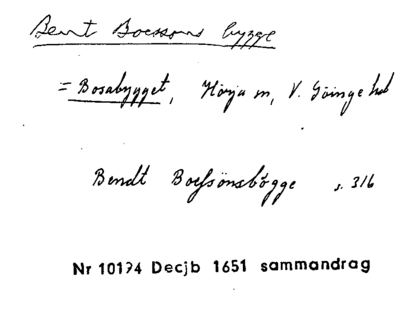 Bent Boessons bygge
= Bosabygget, Hörja sn, V. Göinge hd
Bendt Boessönsbögge s. 316
Nr 10194 Decjb 1651 sammandrag